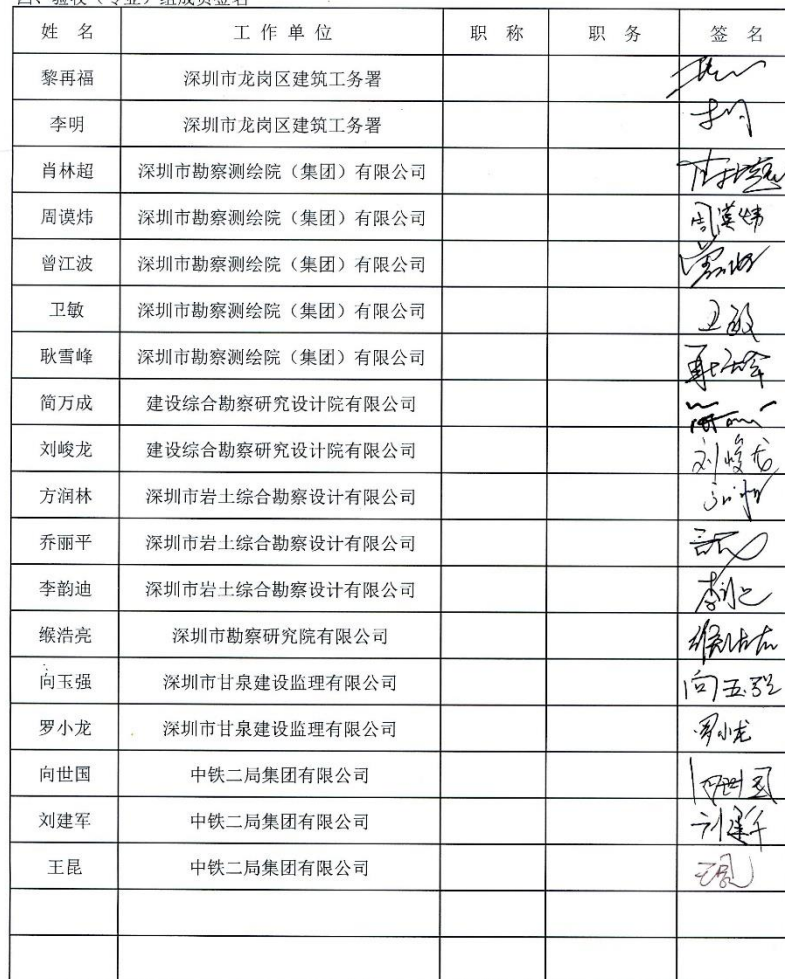 四、验收（专业）组成员签名
姓 名 工 作 单 位 职 称 职 务 签 名
黎再福 深圳市龙岗区建筑工务署
李明 深圳市龙岗区建筑工务署
肖林超 深圳市勘察测绘院（集团）有限公司
周谟炜 深圳市勘察测绘院（集团）有限公司 周谟炜
曾江波 深圳市勘察测绘院（集团）有限公司
卫敏 深圳市勘察测绘院（集团）有限公司 卫敏
耿雪峰 深圳市勘察测绘院（集团）有限公司
简万成 建设综合勘察研究设计院有限公司
刘峻龙 建设综合勘察研究设计院有限公司 刘峻龙
方润林 深圳市岩土综合勘察设计有限公司
乔丽平 深圳市岩土综合勘察设计有限公司
李韵迪 深圳市岩土综合勘察设计有限公司
缑浩亮 深圳市勘察研究院有限公司
向玉强 深圳市甘泉建设监理有限公司 向玉强
罗小龙 深圳市甘泉建设监理有限公司 罗小龙
向世国 中铁二局集团有限公司 向世国
刘建军 中铁二局集团有限公司 刘建军
王昆 中铁二局集团有限公司